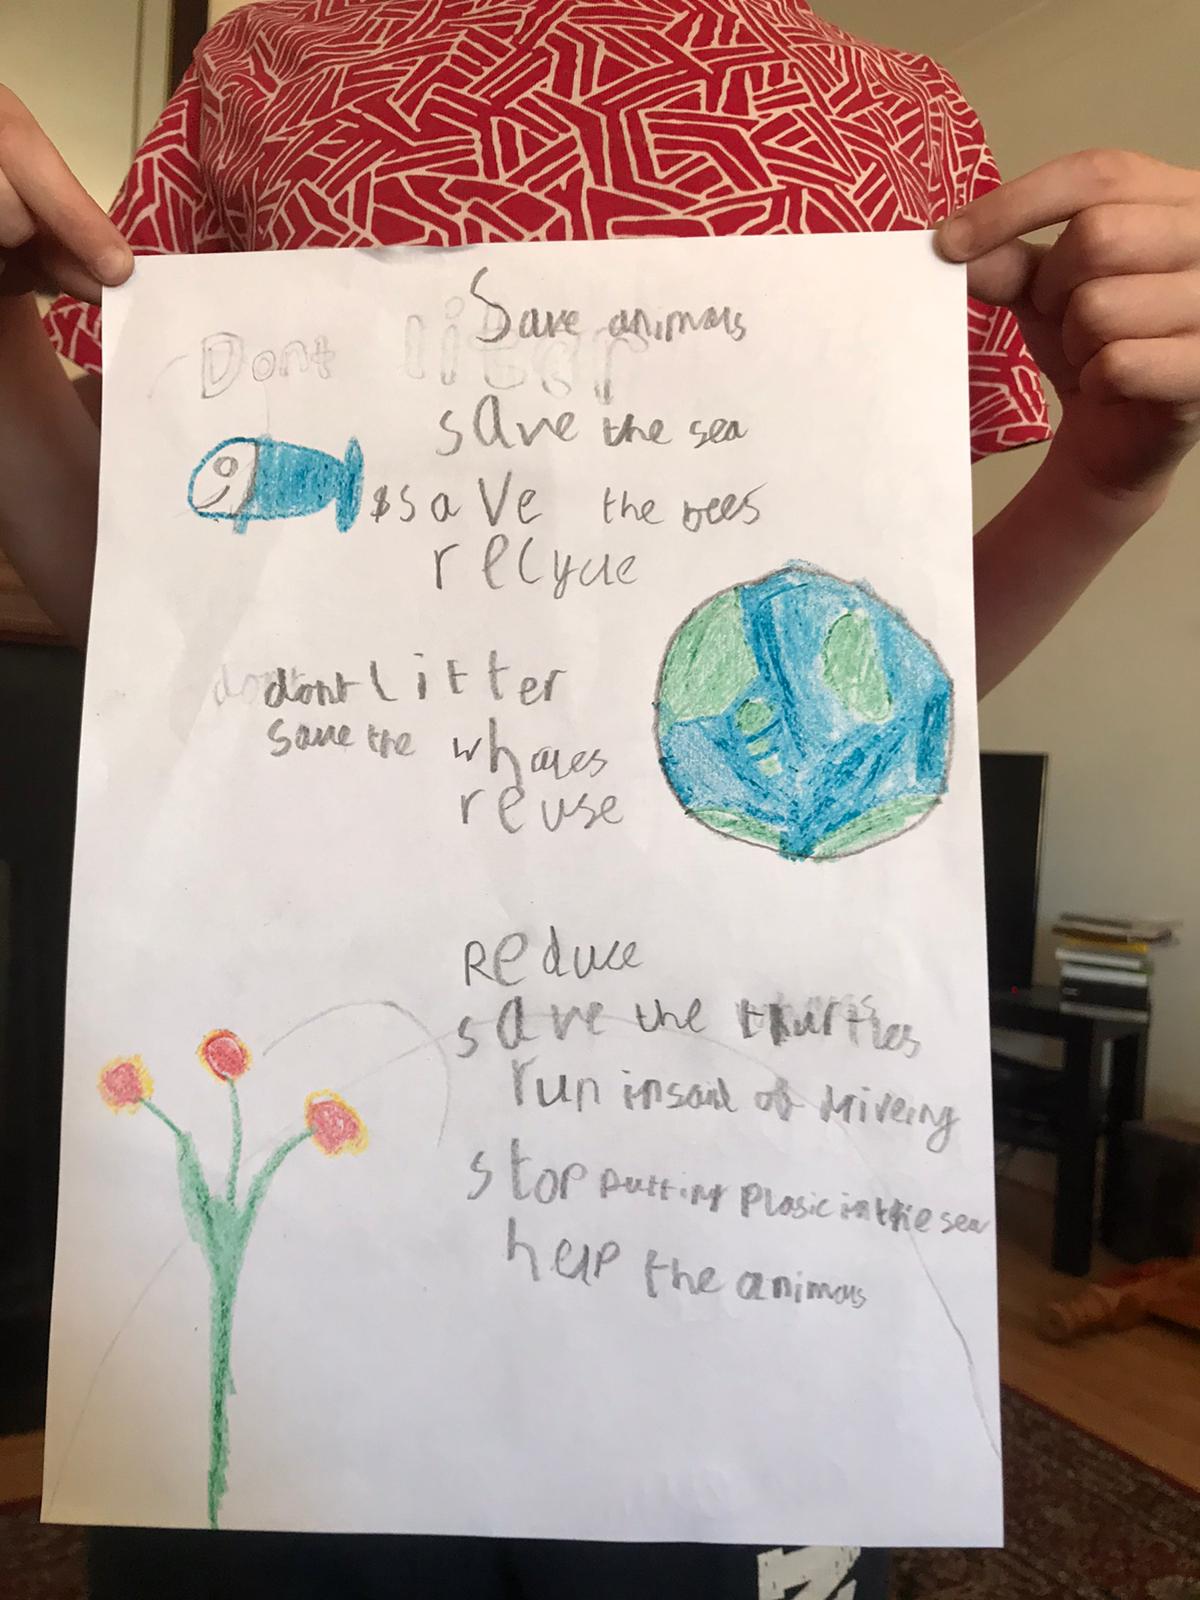 Save animals
Dont liter
save the sea
save the bees
recycle
dont litter
save the whales
reuse
Reduce
save the thurtles
run insaid of driveing
stop putting plasic in the sea
help the animals